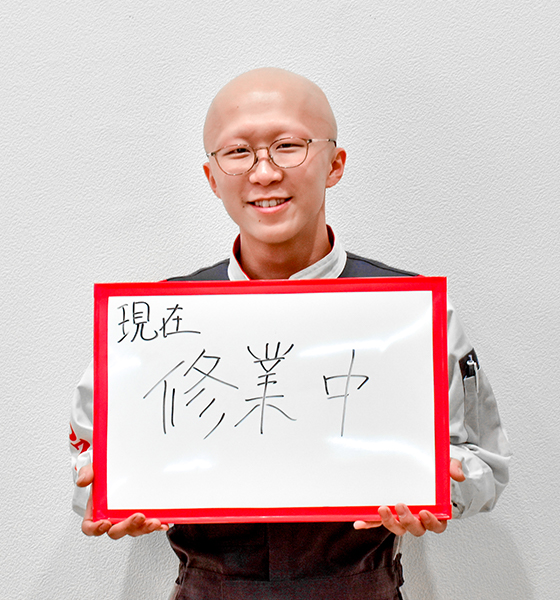 現在
修業中